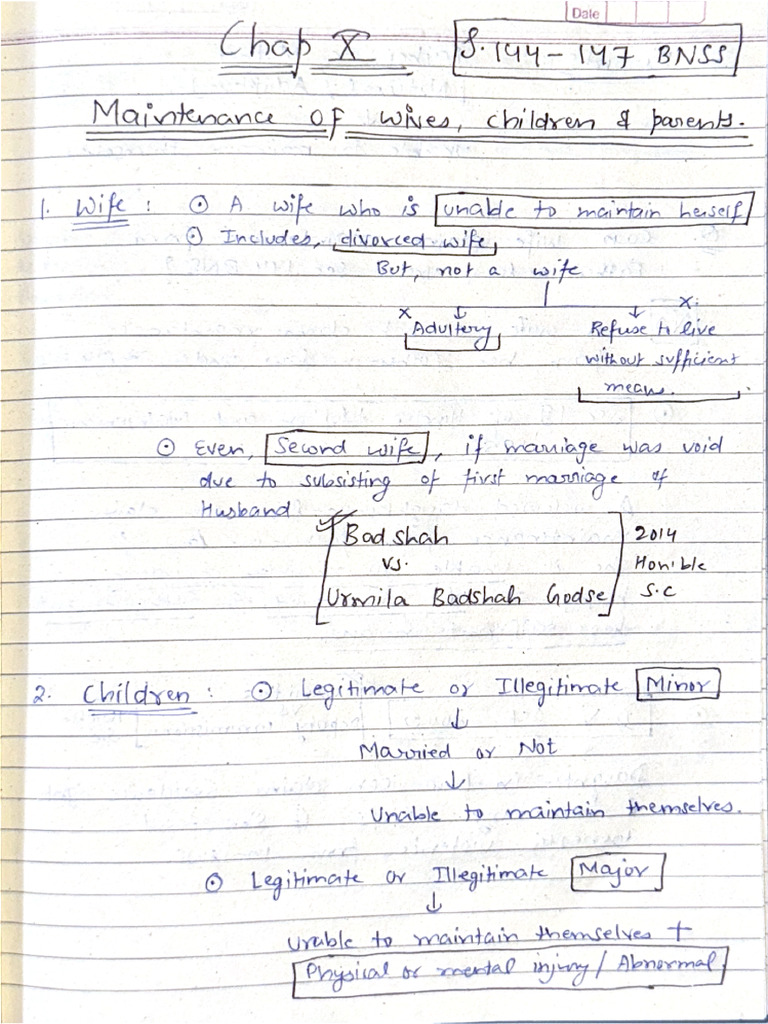 Date
Chap X S. 144 - 147 BNSS
Maintenance of wives, children & parents.
1. Wife : ⊙ A wife who is unable to maintain herself
⊙ Includes, divorced wife,
But, not a wife
x x.
Adultery Refuse to live
without sufficient
means.
⊙ Even, Second wife, if marriage was void
due to subsisting of first marriage of
Husband
Badshah 2014
vs. Hon'ble
Urmila Badshah Godse S.C
2. Children : ⊙ Legitimate or Illegitimate Minor
↓
Married or Not
↓
Unable to maintain themselves.
⊙ Legitimate or Illegitimate Major
↓
Unable to maintain themselves +
Physical or mental injury / Abnormal